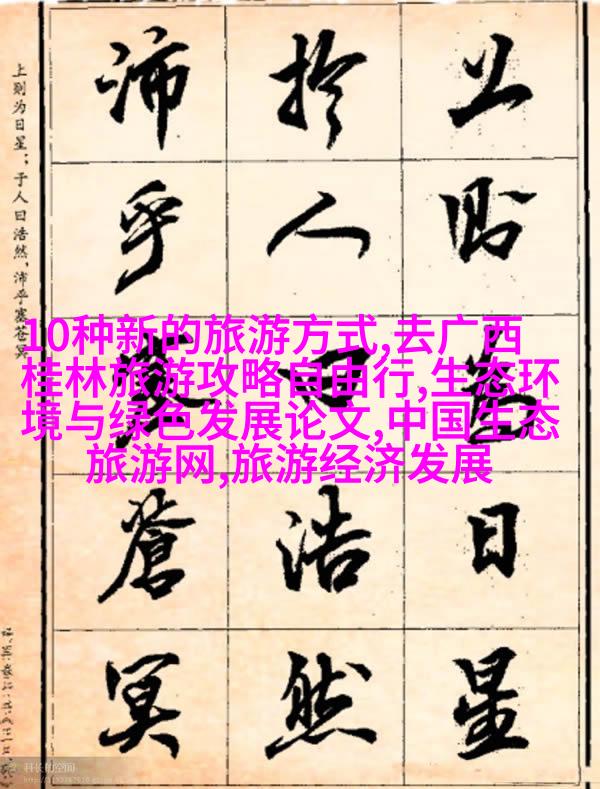 上则为日星
於人曰浩然
沛乎塞苍冥
上则为日星；于人曰浩然，沛乎塞苍冥
10种新的旅游方式,去广西
桂林旅游攻略自由行,生态环
境与绿色发展论文,中国生态
旅游网,旅游经济发展
科长的空间